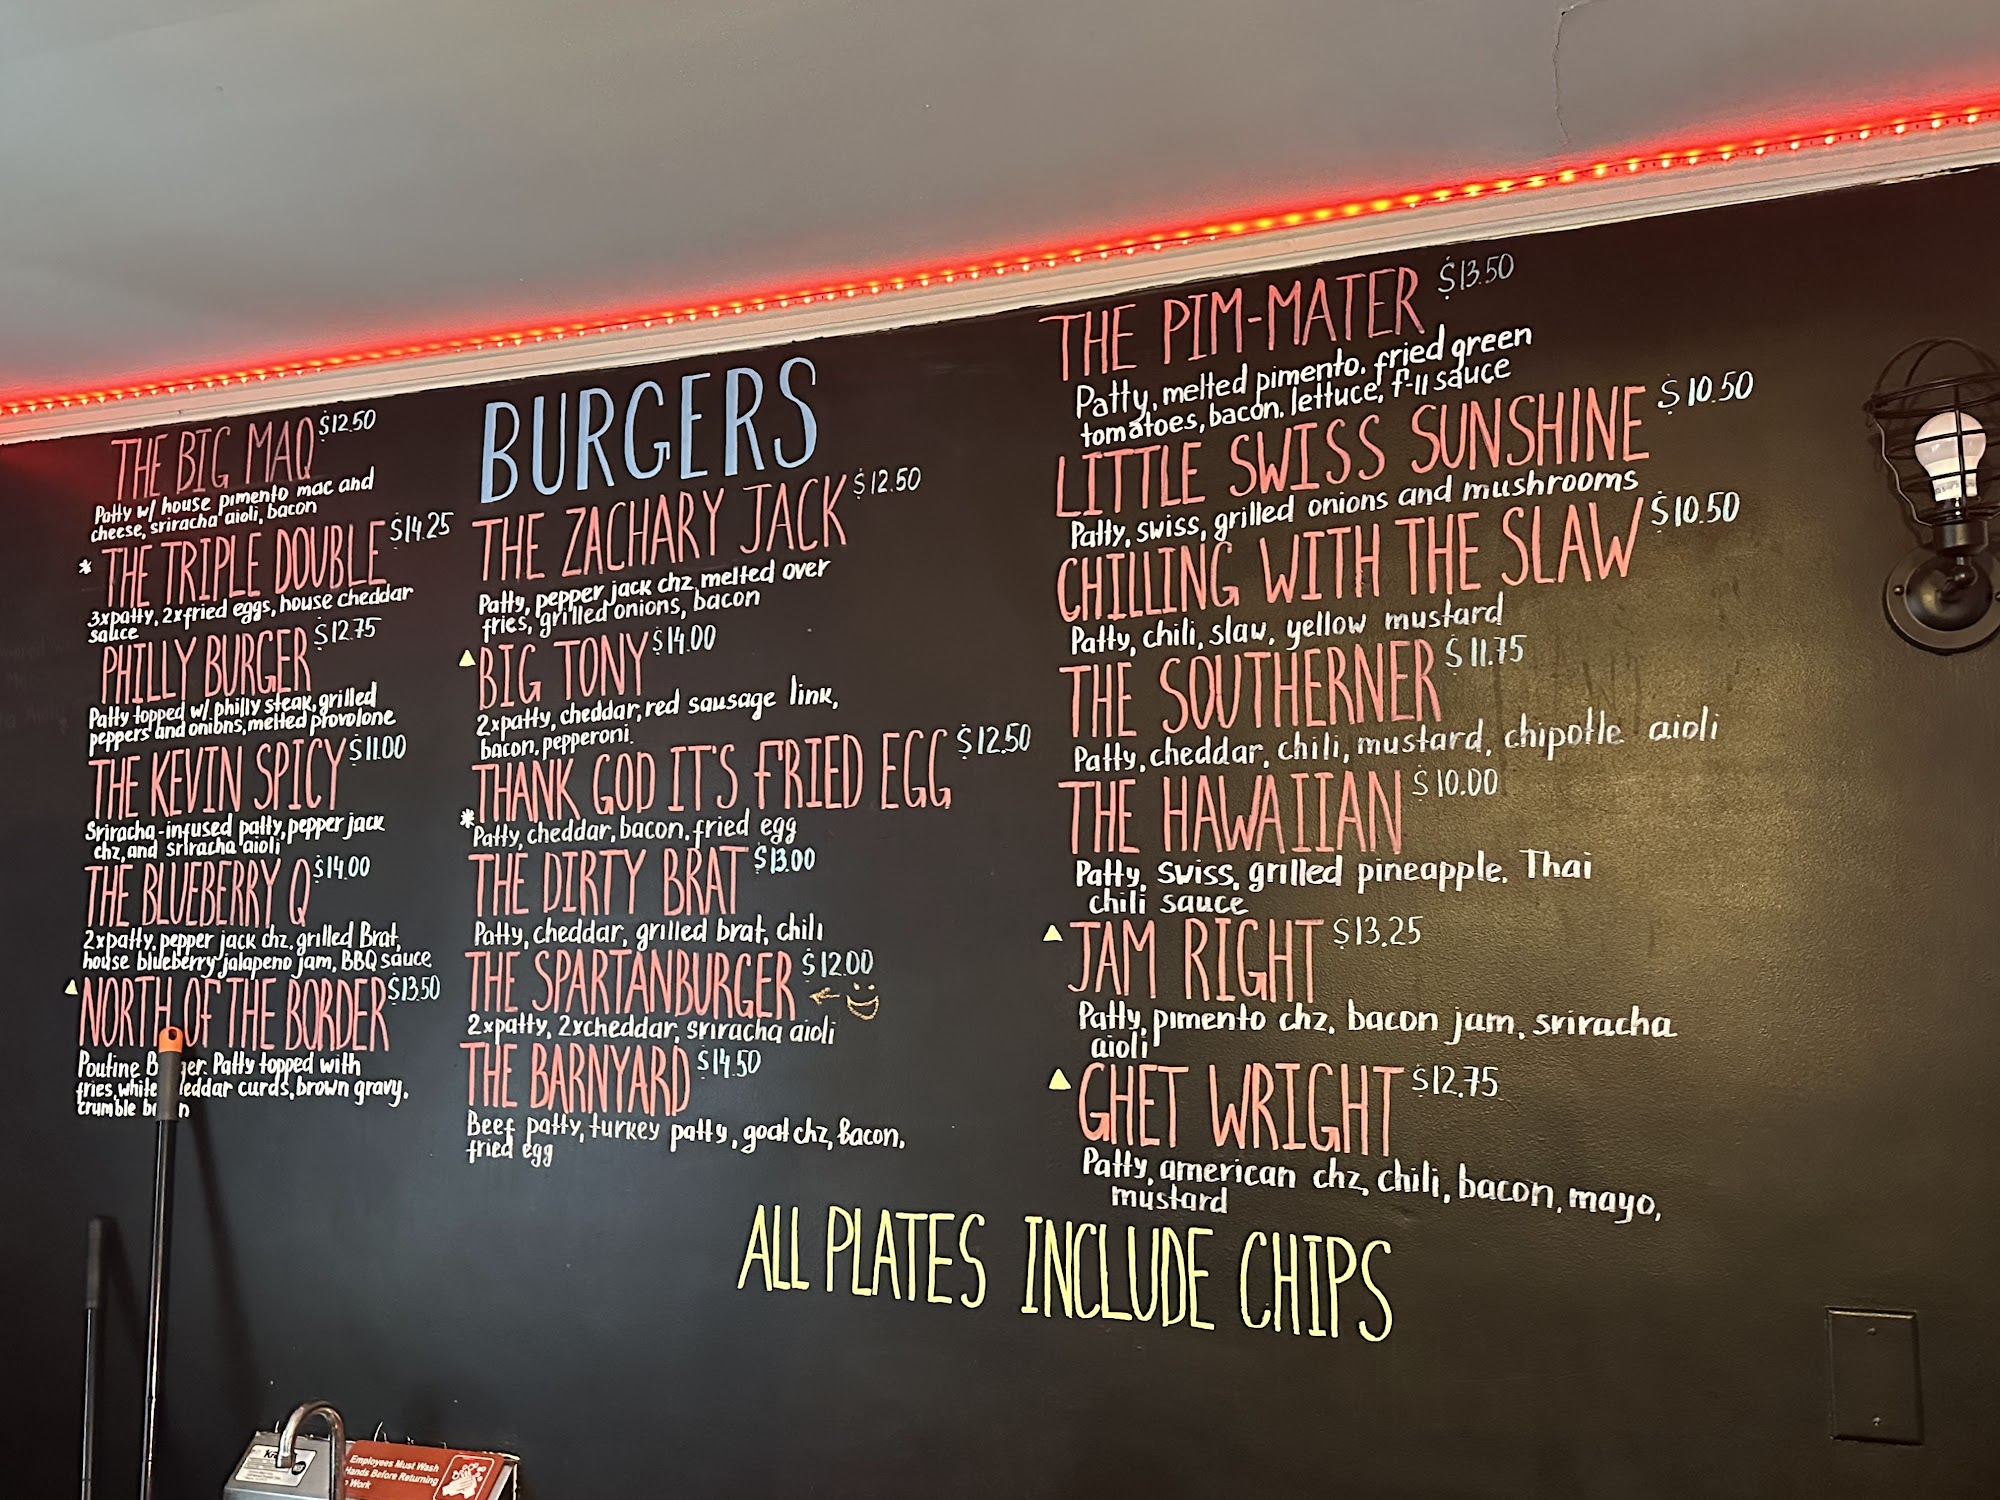 THE BIG MAQ $12.50
Patty w/ house pimento mac and
cheese, sriracha aioli, bacon
* THE TRIPLE DOUBLE $14.25
3xpatty, 2xfried eggs, house cheddar
sauce
PHILLY BURGER $12.75
Patty topped w/ philly steak, grilled
peppers and onions, melted provolone
THE KEVIN SPICY $11.00
Sriracha-infused patty, pepper jack
chz, and sriracha aioli
THE BLUEBERRY Q $14.00
2xpatty, pepper jack chz, grilled Brat,
house blueberry jalapeno jam, BBQ sauce
NORTH OF THE BORDER $13.50
Poutine B ger. Patty topped with
fries, white eddar curds, brown gravy,
crumble b n
BURGERS
THE ZACHARY JACK $12.50
Patty, pepper jack chz melted over
fries, grilled onions, bacon
BIG TONY $14.00
2xpatty, cheddar, red sausage link,
bacon, pepperoni
THANK GOD IT'S FRIED EGG $12.50
* Patty, cheddar, bacon, fried egg
THE DIRTY BRAT $13.00
Patty, cheddar, grilled brat, chili
THE SPARTANBURGER $12.00
2xpatty, 2xcheddar, sriracha aioli
THE BARNYARD $14.50
Beef patty, turkey patty, goat chz, Bacon,
fried egg
THE PIM-MATER $13.50
Patty, melted pimento, fried green
tomatoes, bacon, lettuce, f-11 sauce
LITTLE SWISS SUNSHINE $10.50
Patty, swiss, grilled onions and mushrooms
CHILLING WITH THE SLAW $10.50
Patty, chili, slaw, yellow mustard
THE SOUTHERNER $11.75
Patty, cheddar, chili, mustard, chipotle aioli
THE HAWAIIAN $10.00
Patty, swiss, grilled pineapple, Thai
chili sauce
JAM RIGHT $13.25
Patty, pimento chz, bacon jam, sriracha
aioli
GHET WRIGHT $12.75
Patty, american chz, chili, bacon, mayo,
mustard
ALL PLATES INCLUDE CHIPS
Employees Must Wash
Hands Before Returning
Work